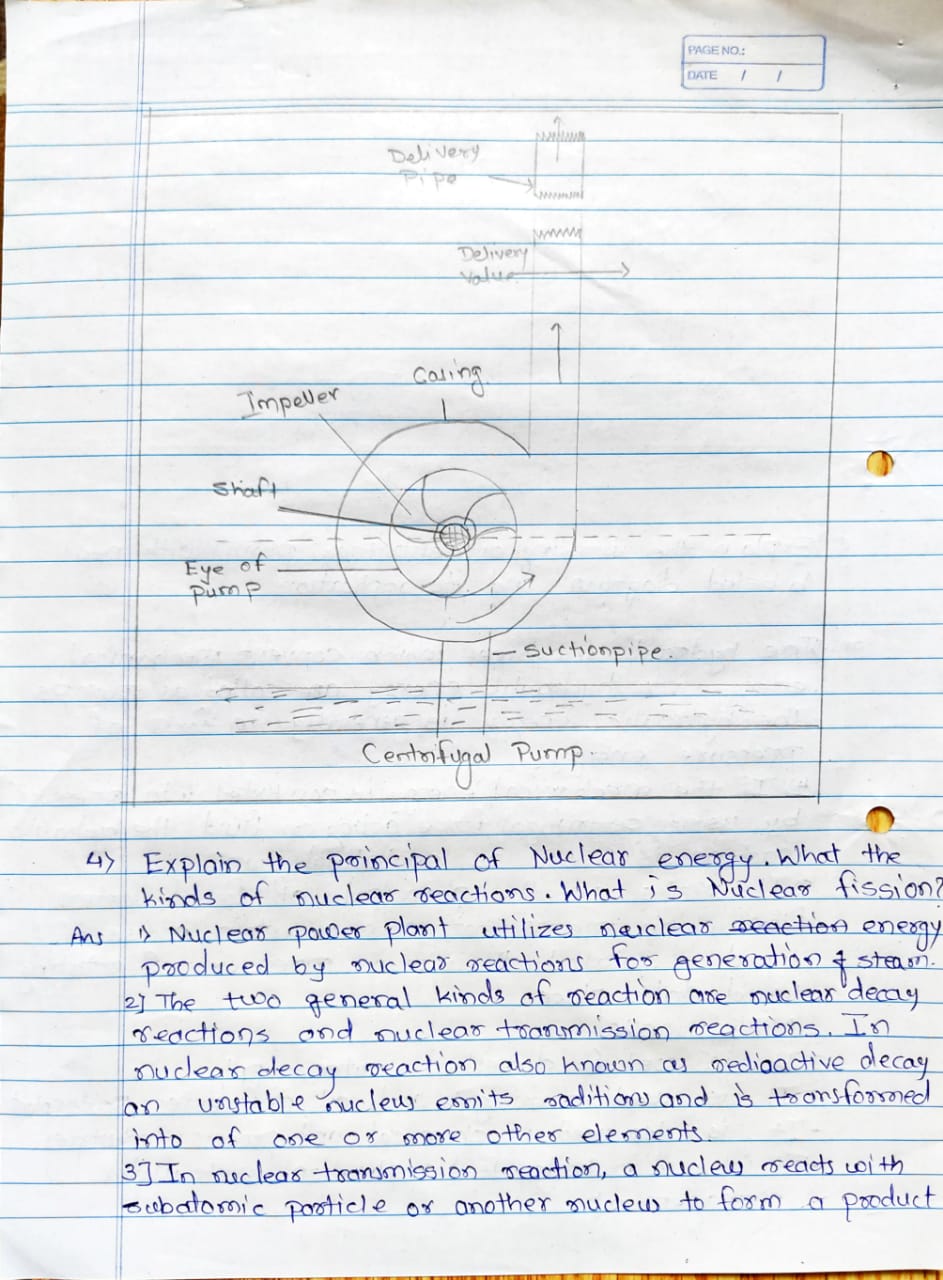 PAGE NO.:
DATE / /
Delivery
Pipe
Delivery
Value
Casing.
Impeller
Shaft
Eye of
Pump
Suctionpipe.
Centrifugal Pump.
4) Explain the principal of Nuclear energy. What the
kinds of nuclear reactions. What is Nuclear fission?
Ans 1) Nuclear power plant utilizes nuclear reaction energy
produced by nuclear reactions for generation & steam.
2] The two general kinds of reaction are nuclear decay
reactions and nuclear transmission reactions. In
nuclear decay reaction also known as redioactive decay
an unstable nucleus emits raditions and is transformed
into of one or more other elements.
3] In nuclear transmission reaction, a nucleus reacts with
subatomic particle or another nucleus to form a product